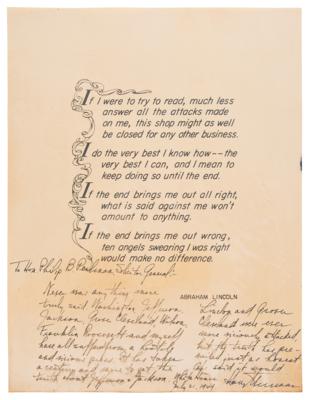 If I were to try to read, much less
answer all the attacks made
on me, this shop might as well
be closed for any other business.
I do the very best I know how--the
very best I can, and I mean to
keep doing so until the end.
If the end brings me out all right,
what is said against me won't
amount to anything.
If the end brings me out wrong,
ten angels swearing I was right
would make no difference.
ABRAHAM LINCOLN
To Hon. Philip B. Perlman, Solicitor General:
Never was any thing more
truly said. Washington, Jefferson
Jackson, Grover Cleveland, Wilson,
Franklin Roosevelt and myself
have all suffered from a hostile
and vicious press. It has taken
a century and more to get the
truth about Jefferson &amp; Jackson.
Lincoln and Grover
Cleveland were even
more viciously attacked,
but the truth has
just as honest
said it would
Harry Truman